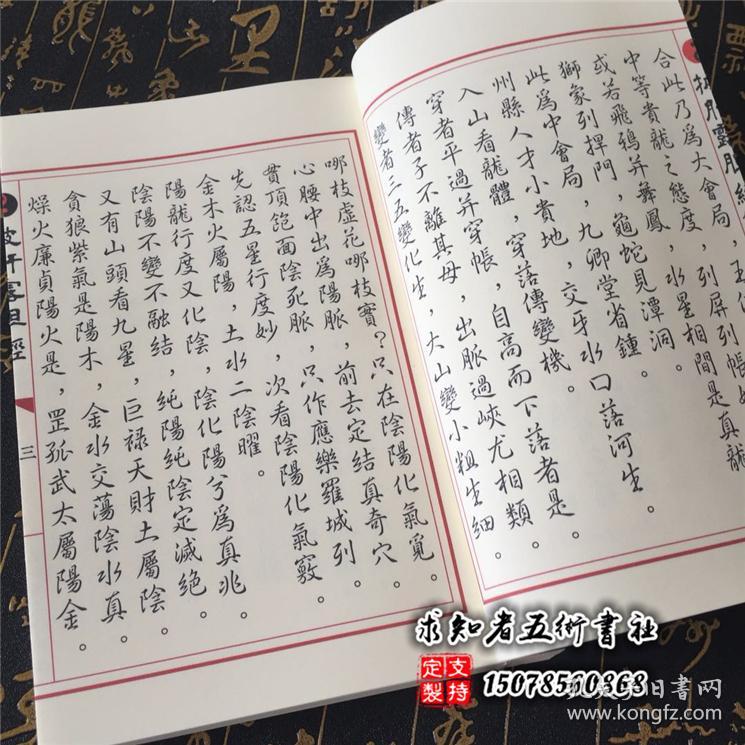 合此乃為大會局，
中等貴龍之態度，列屏列帳
或若飛鴉并舞鳳，水星相間是真龍
獅象列捍門，龜蛇見潭洞。
此為中會局，九卿堂省鍾。
州縣人才小貴地，交牙水口落河生。
入山看龍體，穿落傳變機。
穿者平過并穿帳，自高而下落者是。
傳者子不離其母，出脈過峽尤相類。
變者二五變化生，大山變小粗生細。
哪枝虛花哪枝實？只在陰陽化氣覓。
心腰中出為陽脈，前去定結真奇穴。
貫頂飽面陰死脈，只作應樂羅城列。
先認五星行度妙，次看陰陽化氣竅。
金木火屬陽，土水二陰曜。
陽龍行度又化陰，陰化陽兮為真兆。
陰陽不變不融結，純陽純陰定滅絕。
又有山頭看九星，巨祿天財土屬陰。
貪狼紫氣是陽木，金水交蕩陰水真。
燥火廉貞陽火是，罡孤武太屬陽金。
三
求知者五術書社
支持定製
15078510868
旧書网
www.kongfz.com